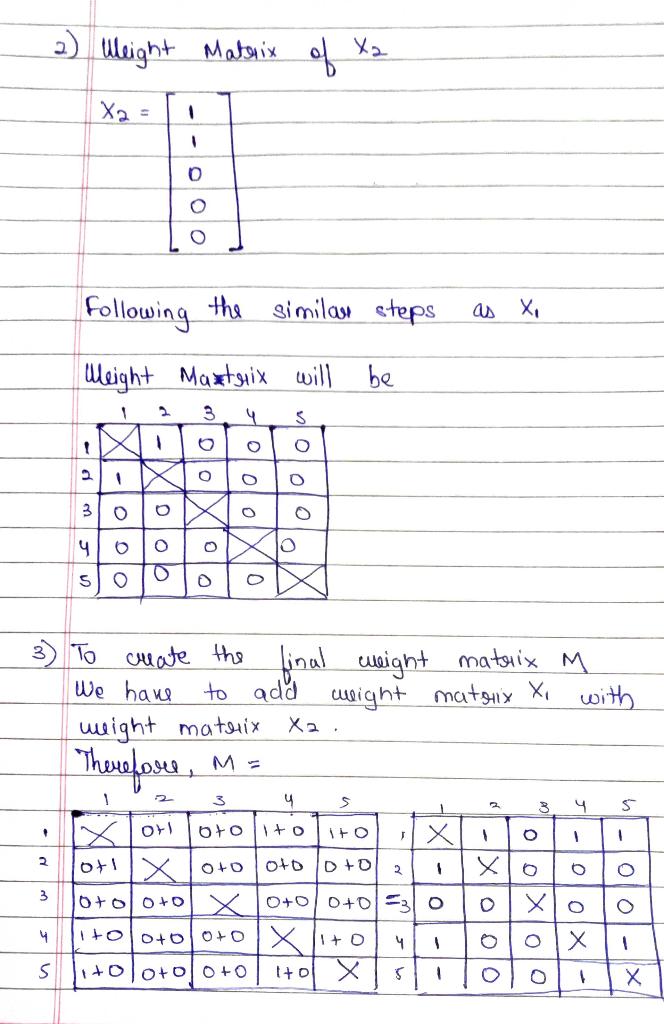 2) Weight Matrix of X2
X2 = 1
1
0
0
0
Following the similar steps as X1
Weight Matrix will be
1 2 3 4 5
1 X 1 0 0 0
2 1 X 0 0 0
3 0 0 X 0 0
4 0 0 0 X 0
5 0 0 0 0 X
3) To create the final weight matrix M
We have to add weight matrix X1 with
weight matrix X2.
Therefore, M =
1 2 3 4 5 1 2 3 4 5
1 X 0+1 0+0 1+0 1+0 1 X 1 0 1 1
2 0+1 X 0+0 0+0 0+0 2 1 X 0 0 0
3 0+0 0+0 X 0+0 0+0 = 3 0 0 X 0 0
4 1+0 0+0 0+0 X 1+0 4 1 0 0 X 1
5 1+0 0+0 0+0 1+0 X 5 1 0 0 1 X